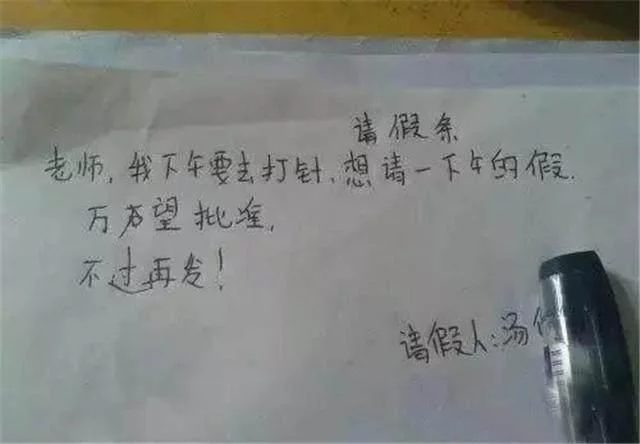 请假条
老师,我下午要去打针、想请一下午的假.
万方望批准,
不过再发!
请假人:汤